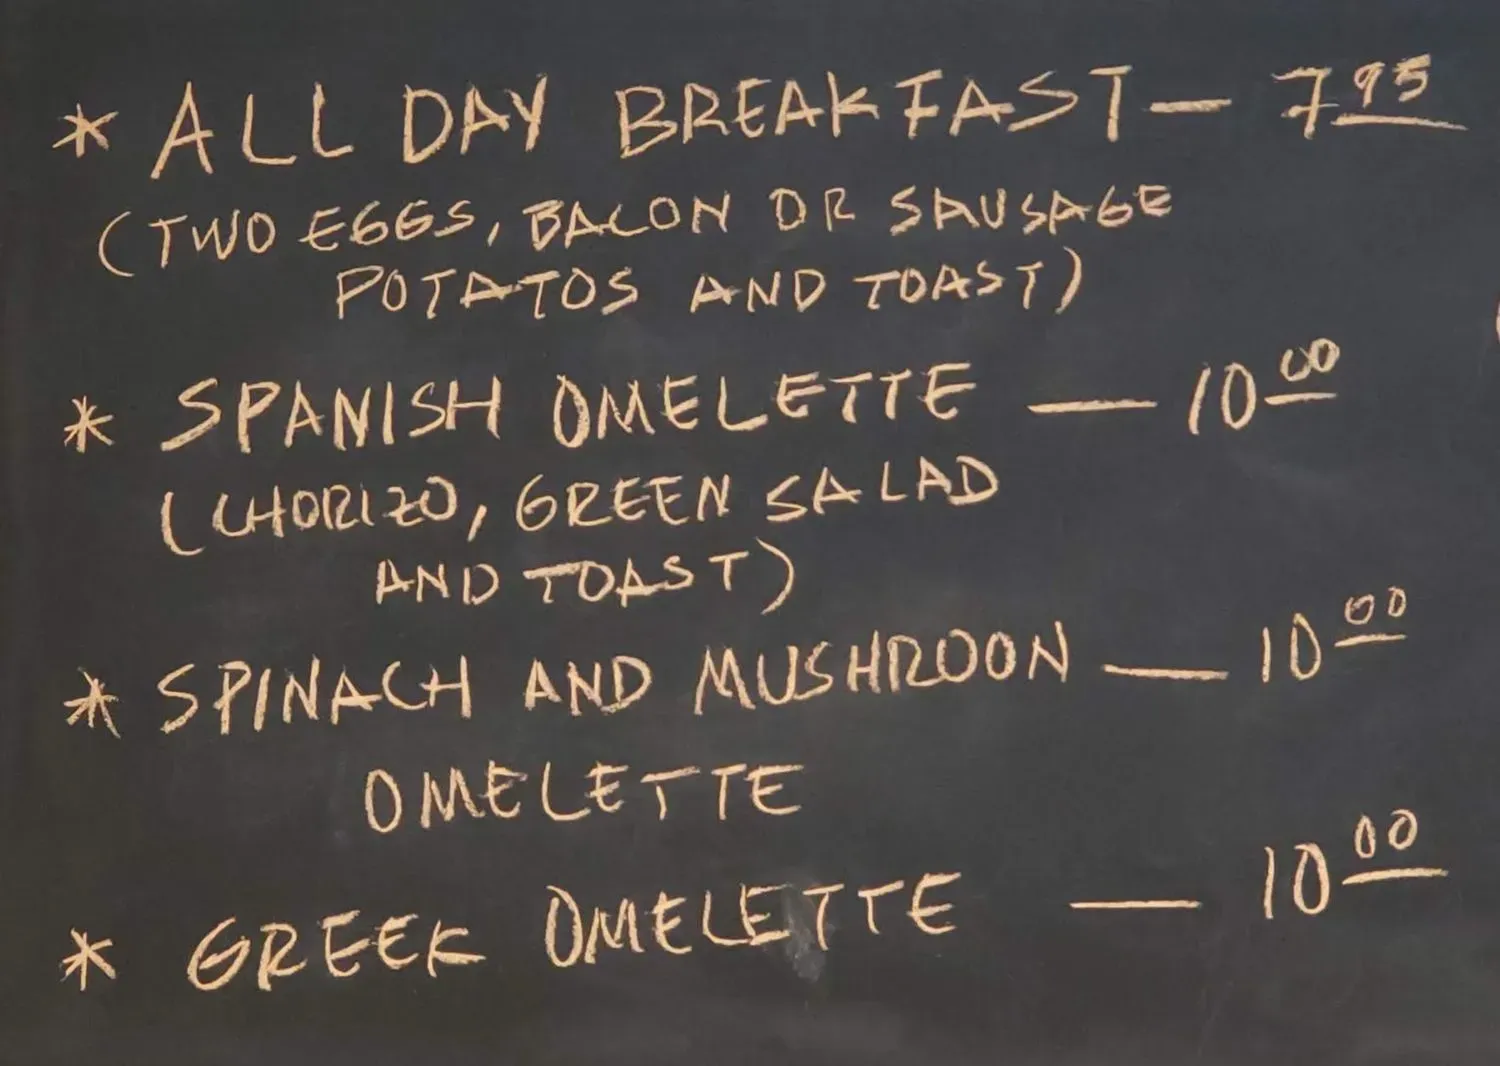 * ALL DAY BREAKFAST — 7 95
(TWO EGGS, BACON OR SAUSAGE
POTATOS AND TOAST)
* SPANISH OMELETTE — 10 00
(CHORIZO, GREEN SALAD
AND TOAST)
* SPINACH AND MUSHROON — 10 00
OMELETTE
* GREEK OMELETTE — 10 00